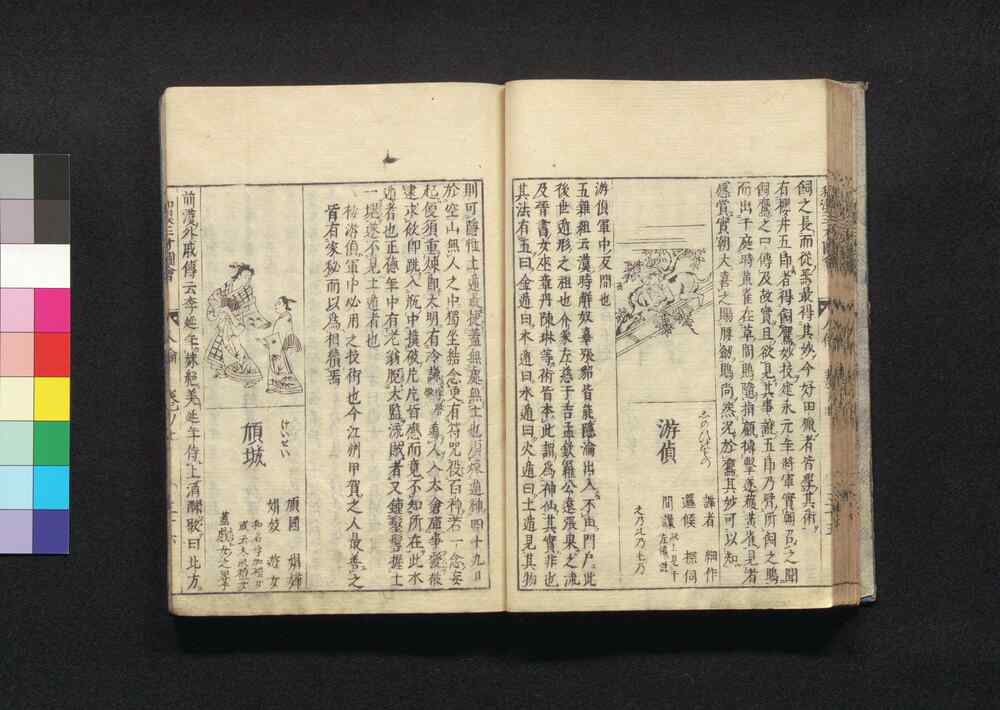 飼之長而從焉最得其妙今好田獵者皆學其術
有櫻井五郎者得飼鷹妙技建永元年將軍實朝召之聞
飼鷹之口傳及故實且欲見其事證五郎乃臂所飼之鵙
而出于庭時黃雀在草間鵙隨指顧搏擊遂獲黃雀見者
感賞實朝大喜之賜腰劔鵙尚然況於鷹其妙可以知
しのびもの
游偵
諜者 細作
邏候 探伺
間諜
游偵軍中反間也
五雜組云漢時解奴辜張貂皆能隱淪出入不由門戶此
後世遁形之祖也介象左慈于吉孟欽羅公遠張果之流
及晉書女巫章丹陳琳等術皆本此謂爲神仙其實非也
其法有五曰金遁曰木遁曰水遁曰火遁曰土遁見其物
則可隱惟土遁最捷蓋無處無土也須煉遁神四十九日
於空山無人之中獨坐結念更有符呪役百神若一念妄
起便須重煉卽大明有冷謙
遁人入太倉庫事發被
逮求飲卽跳入瓶中撲破片片皆應而竟不知所在此水
遁者也正德年中有老翁脫太監
賊者又
土
一堤遂不見土遁者也
按游偵軍中必用之技術也今江州甲賀之人最善之
皆有家秘而以爲相續焉
和漢三才圖會
人倫
けいせい
傾城
傾國 娼婦
娼妓 遊女
前漢外戚傳云李延年妹絕美延年侍上酒酣歌曰北方